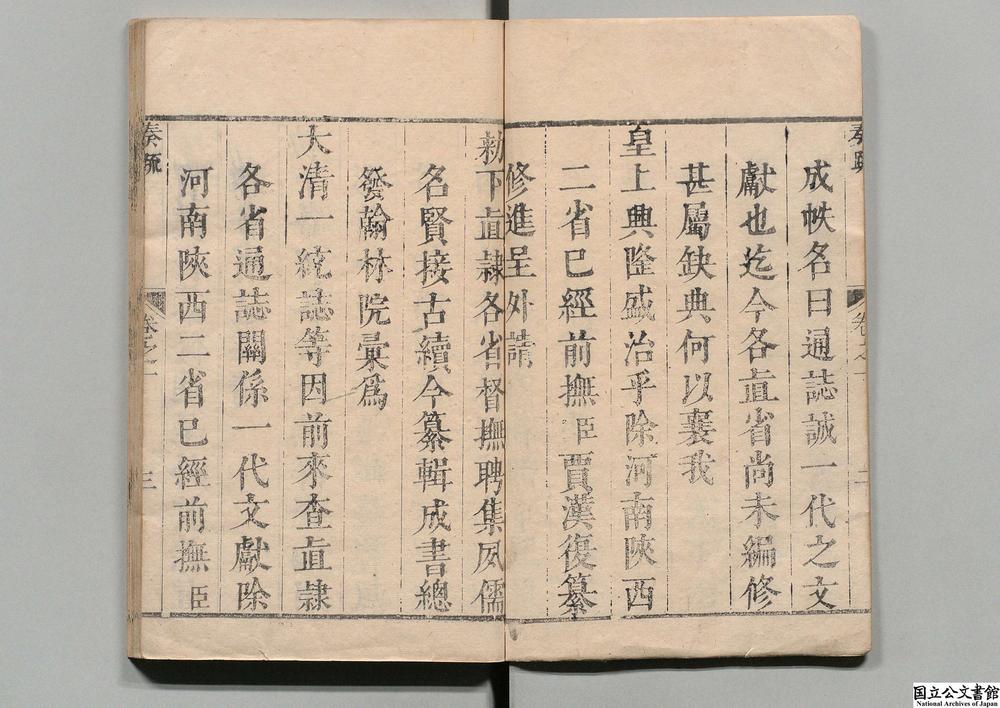 奏疏
卷之一
二
成帙名曰通誌誠一代之文
獻也迄今各直省尚未編修
甚屬缺典何以襄我
皇上興隆盛治乎除河南陝西
二省已經前撫臣賈漢復纂
修進呈外請
勅下直隸各省督撫聘集夙儒
名賢接古續今纂輯成書總
發翰林院彙為
大清一統誌等因前來查直隸
各省通誌關係一代文獻除
河南陝西二省已經前撫臣
奏疏
卷之一
三
国立公文書館
National Archives of Japan